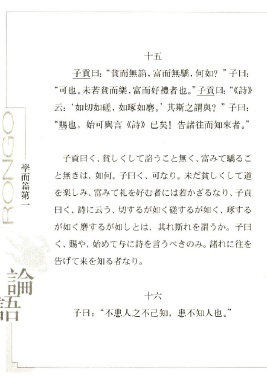 十五
子貢曰：“貧而無諂，富而無驕，何如？”子曰：
“可也。未若貧而樂，富而好禮者也。”子貢曰：“《詩》
云：‘如切如磋，如琢如磨。’其斯之謂與？”子曰：
“賜也，始可與言《詩》已矣！告諸往而知來者。”
子貢曰く、貧しくして諂うこと無く、富みて驕るこ
と無きは、如何。子曰く、可なり。未だ貧しくして道
を楽しみ、富みて礼を好む者には若かざるなり。子貢
曰く、詩に云う、切するが如く磋するが如く、琢する
が如く磨するが如しとは、其れ斯れを謂うか。子曰
く、賜や、始めて与に詩を言うべきのみ。諸れに往を
告げて来を知る者なり。
十六
子曰：“不患人之不己知，患不知人也。”
RONGO
學而篇第一
論語